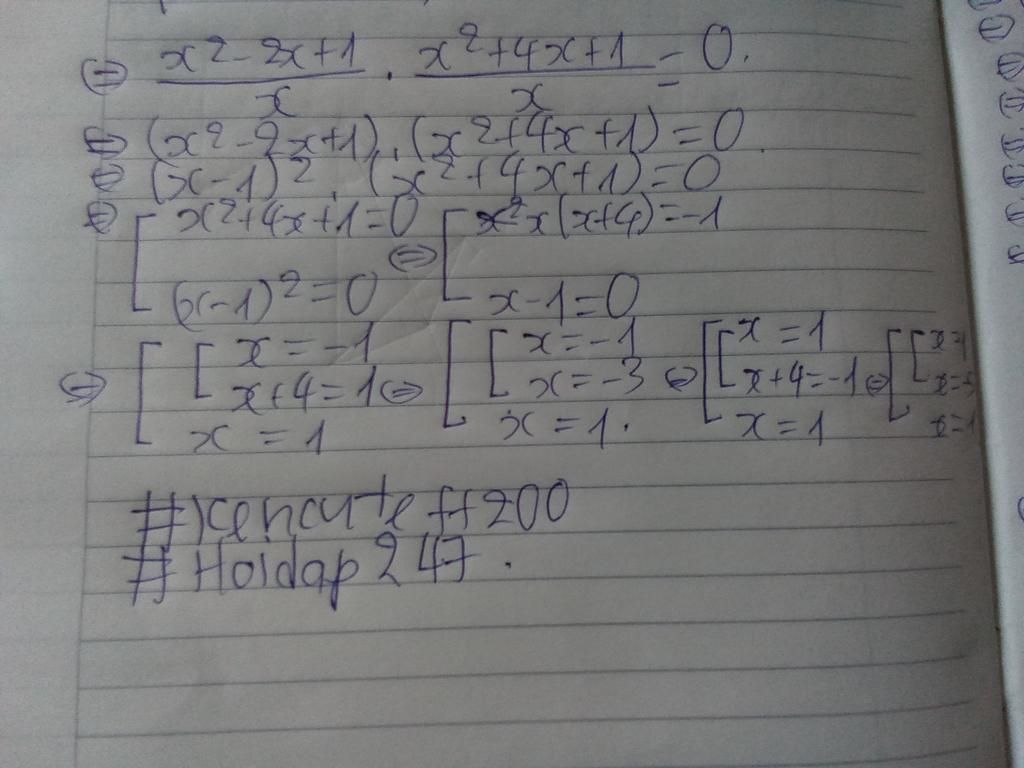 ⇔ x²-2x+1/x . x²+4x+1/x = 0.
⇔ (x²-2x+1).(x²+4x+1)=0
⇔ (x-1)².(x²+4x+1)=0
⇔ [ x²+4x+1=0 ⇔ [ x(x+4)=-1
(x-1)²=0 x-1=0
[ [ x=-1 [ [ x=-1 [ [ x=1 [ [
⇔ x+4=1 ⇔ x=-3 ⇔ x+4=-1 ⇔
x=1 x=1. x=1
ff200
#Hoidap247.